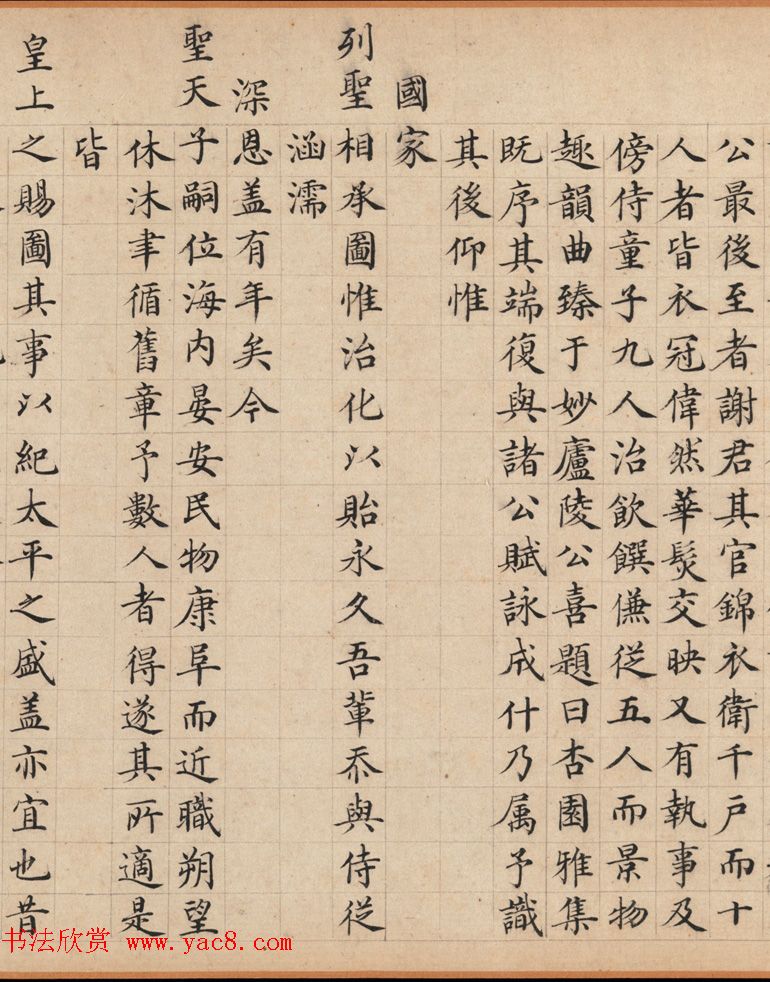 公最後至者謝君其官錦衣衛千戶而十
人者皆衣冠偉然華髮交映又有執事及
傍侍童子九人治飲饌傔從五人而景物
趣韻曲臻于妙廬陵公喜題曰杏園雅集
既序其端復與諸公賦詠成什乃属予識
其後仰惟
國家
列聖相承圖惟治化以貽永久吾輩忝與侍從
涵濡
深恩盖有年矣今
聖天子嗣位海内晏安民物康阜而近職朔望
休沐聿循舊章予數人者得遂其所適是
皆
皇上之賜圖其事以紀太平之盛盖亦宜也昔
书法欣赏 www.yac8.com